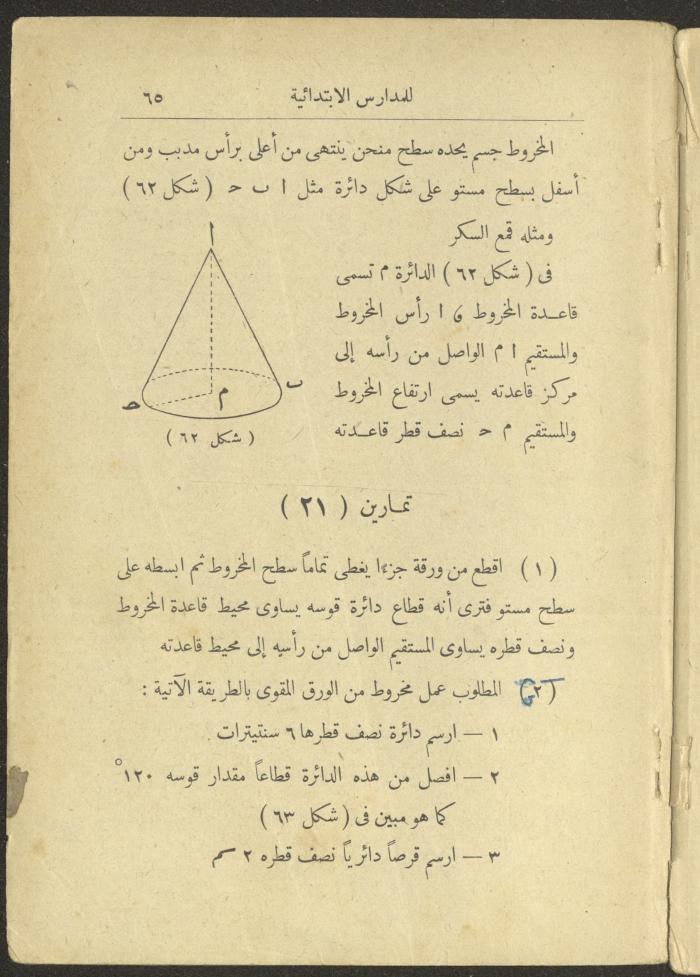 للمدارس الابتدائية ٦٥
المخروط جسم يحده سطح منحن ينتهى من أعلى برأس مدبب ومن
أسفل بسطح مستو على شكل دائرة مثل ا ب ح ( شكل ٦٢ )
ومثله قمع السكر
فى ( شكل ٦٢ ) الدائرة م تسمى
قاعدة المخروط و ا رأس المخروط
والمستقيم ا م الواصل من رأسه إلى
مركز قاعدته يسمى ارتفاع المخروط
والمستقيم م ح نصف قطر قاعدته
ا
ب
م
ح
( شكل ٦٢ )
تمارين ( ٢١ )
( ١ ) اقطع من ورقة جزءا يغطى تماماً سطح المخروط ثم ابسطه على
سطح مستو فترى أنه قطاع دائرة قوسه يساوى محيط قاعدة المخروط
ونصف قطره يساوى المستقيم الواصل من رأسه إلى محيط قاعدته
( ٢ ) المطلوب عمل مخروط من الورق المقوى بالطريقة الآتية :
١ — ارسم دائرة نصف قطرها ٦ سنتيترات
٢ — افصل من هذه الدائرة قطاعاً مقدار قوسه ١٢٠°
كما هو مبين فى ( شكل ٦٣ )
٣ — ارسم قرصاً دائرياً نصف قطره ٢ سم